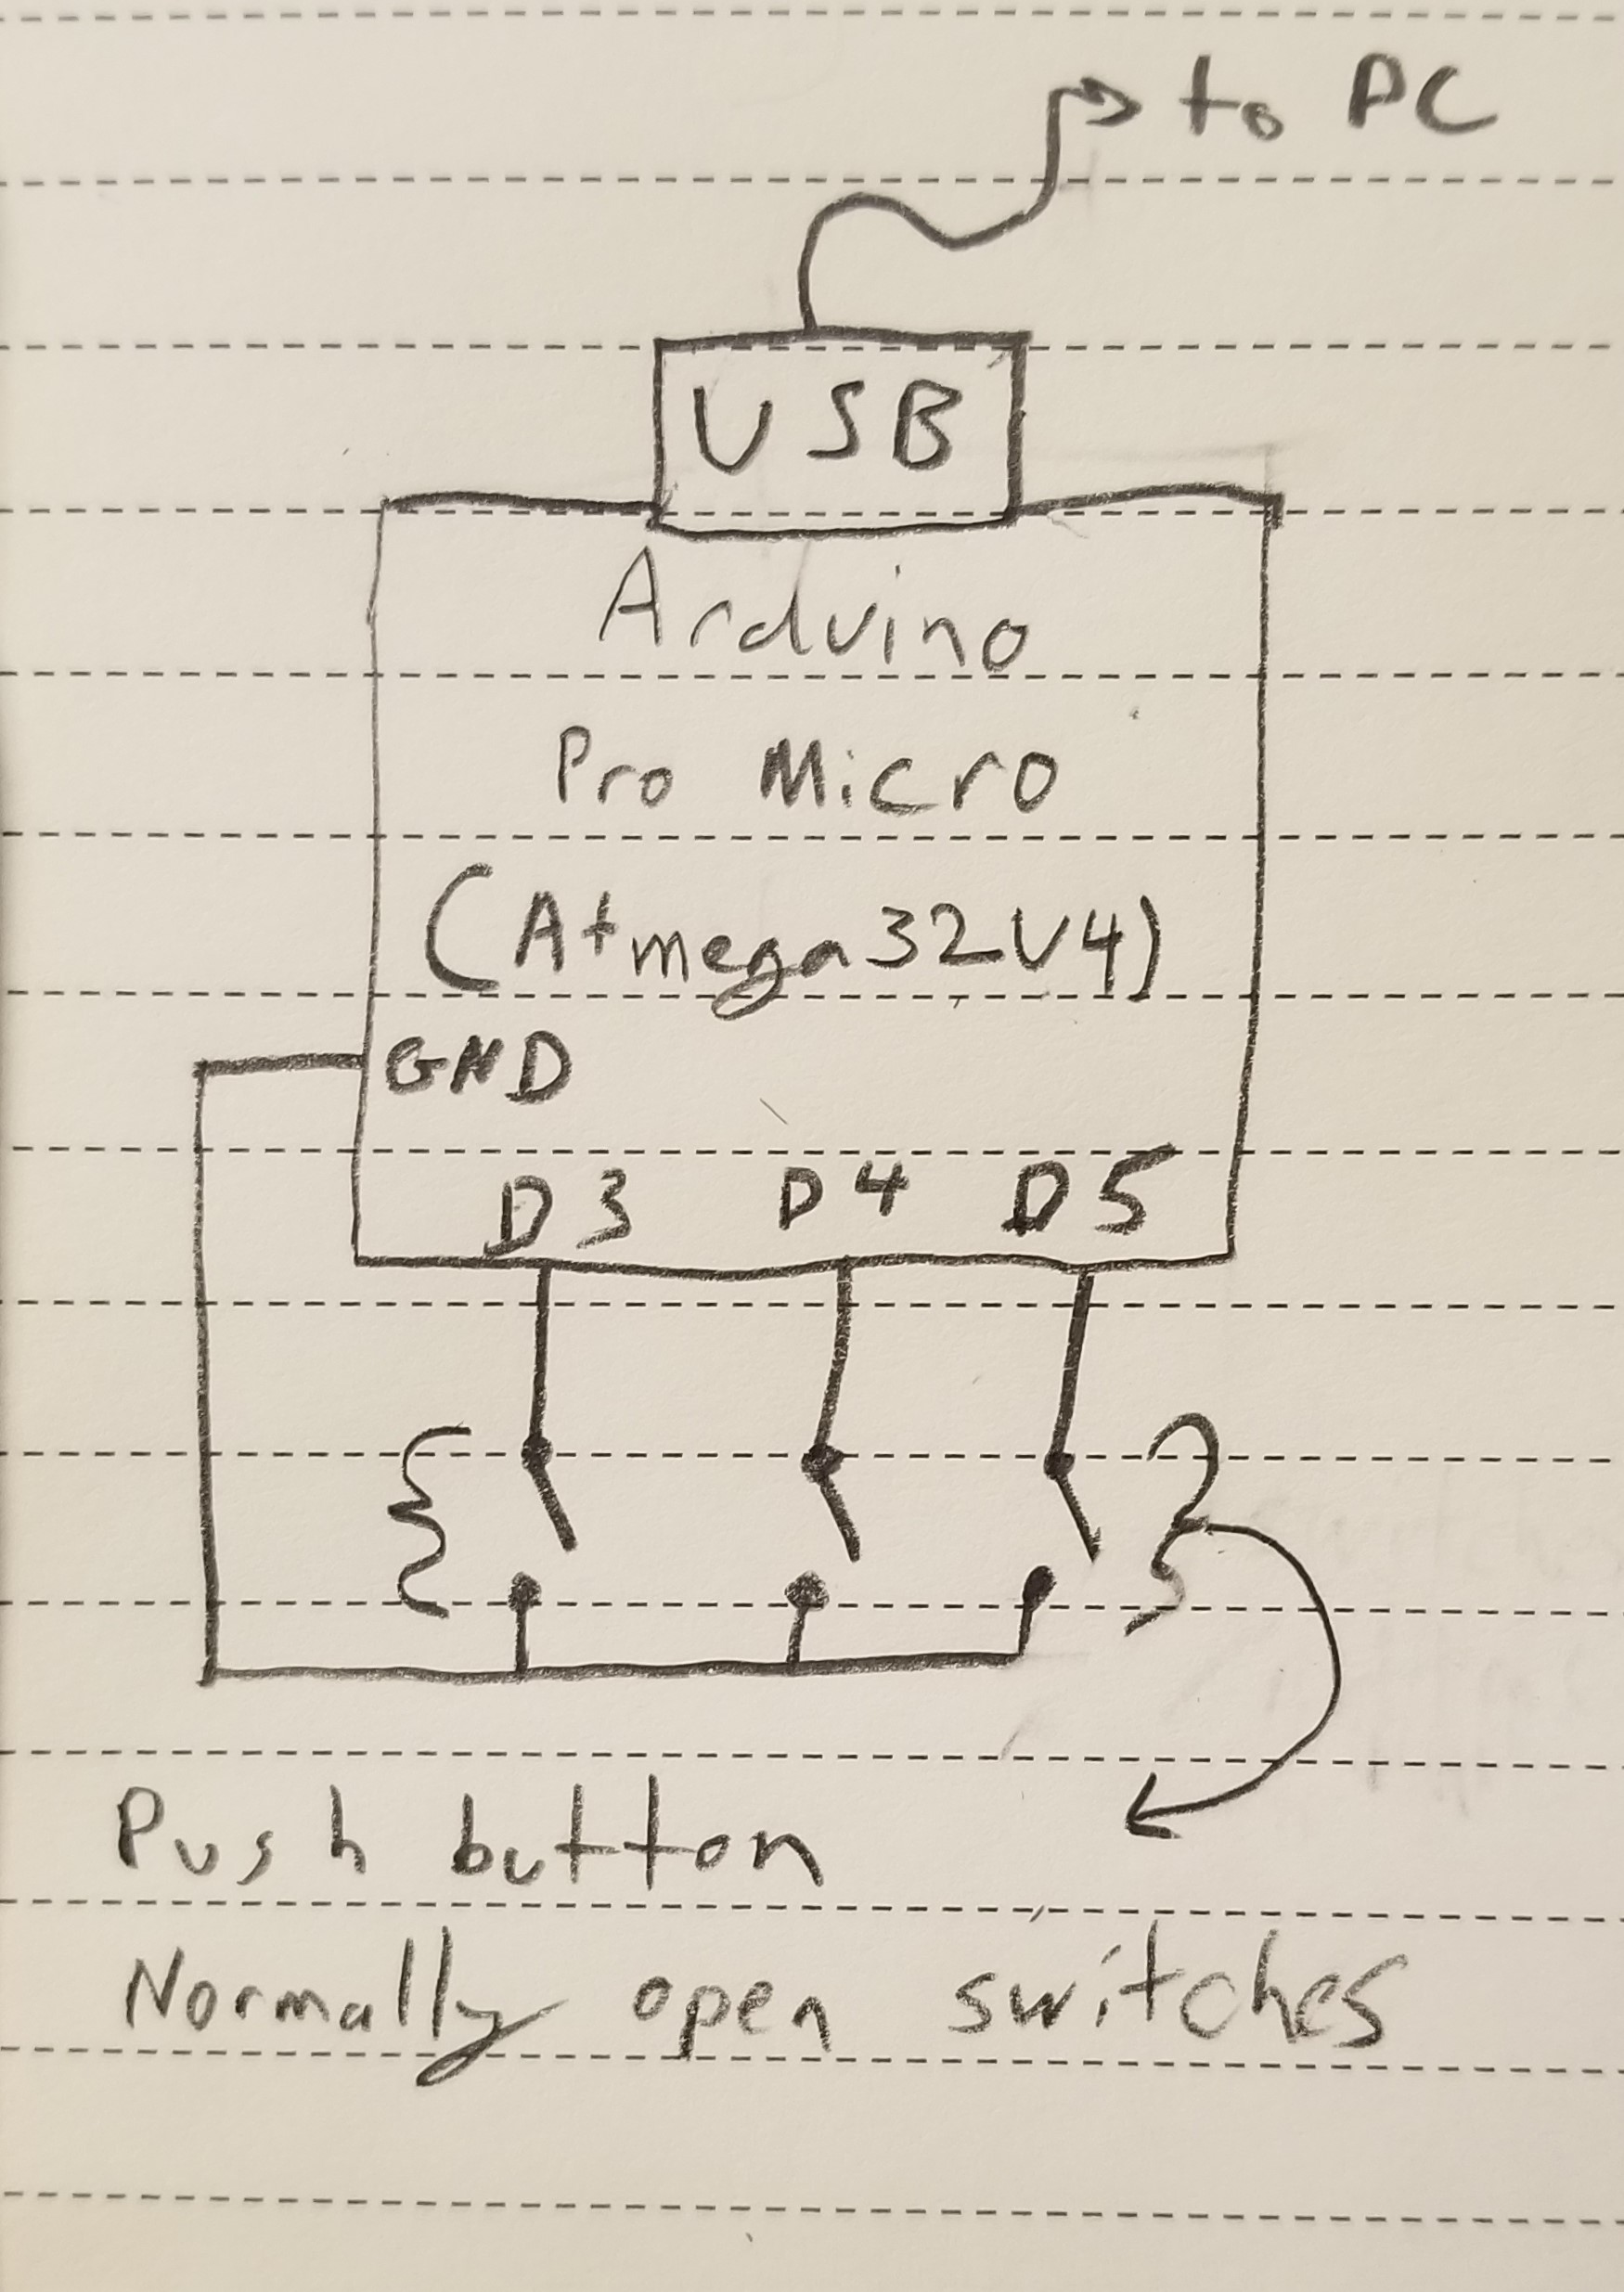 to PC
USB
Arduino
Pro Micro
(Atmega32U4)
GND
D3 D4 D5
Push button
Normally open switches